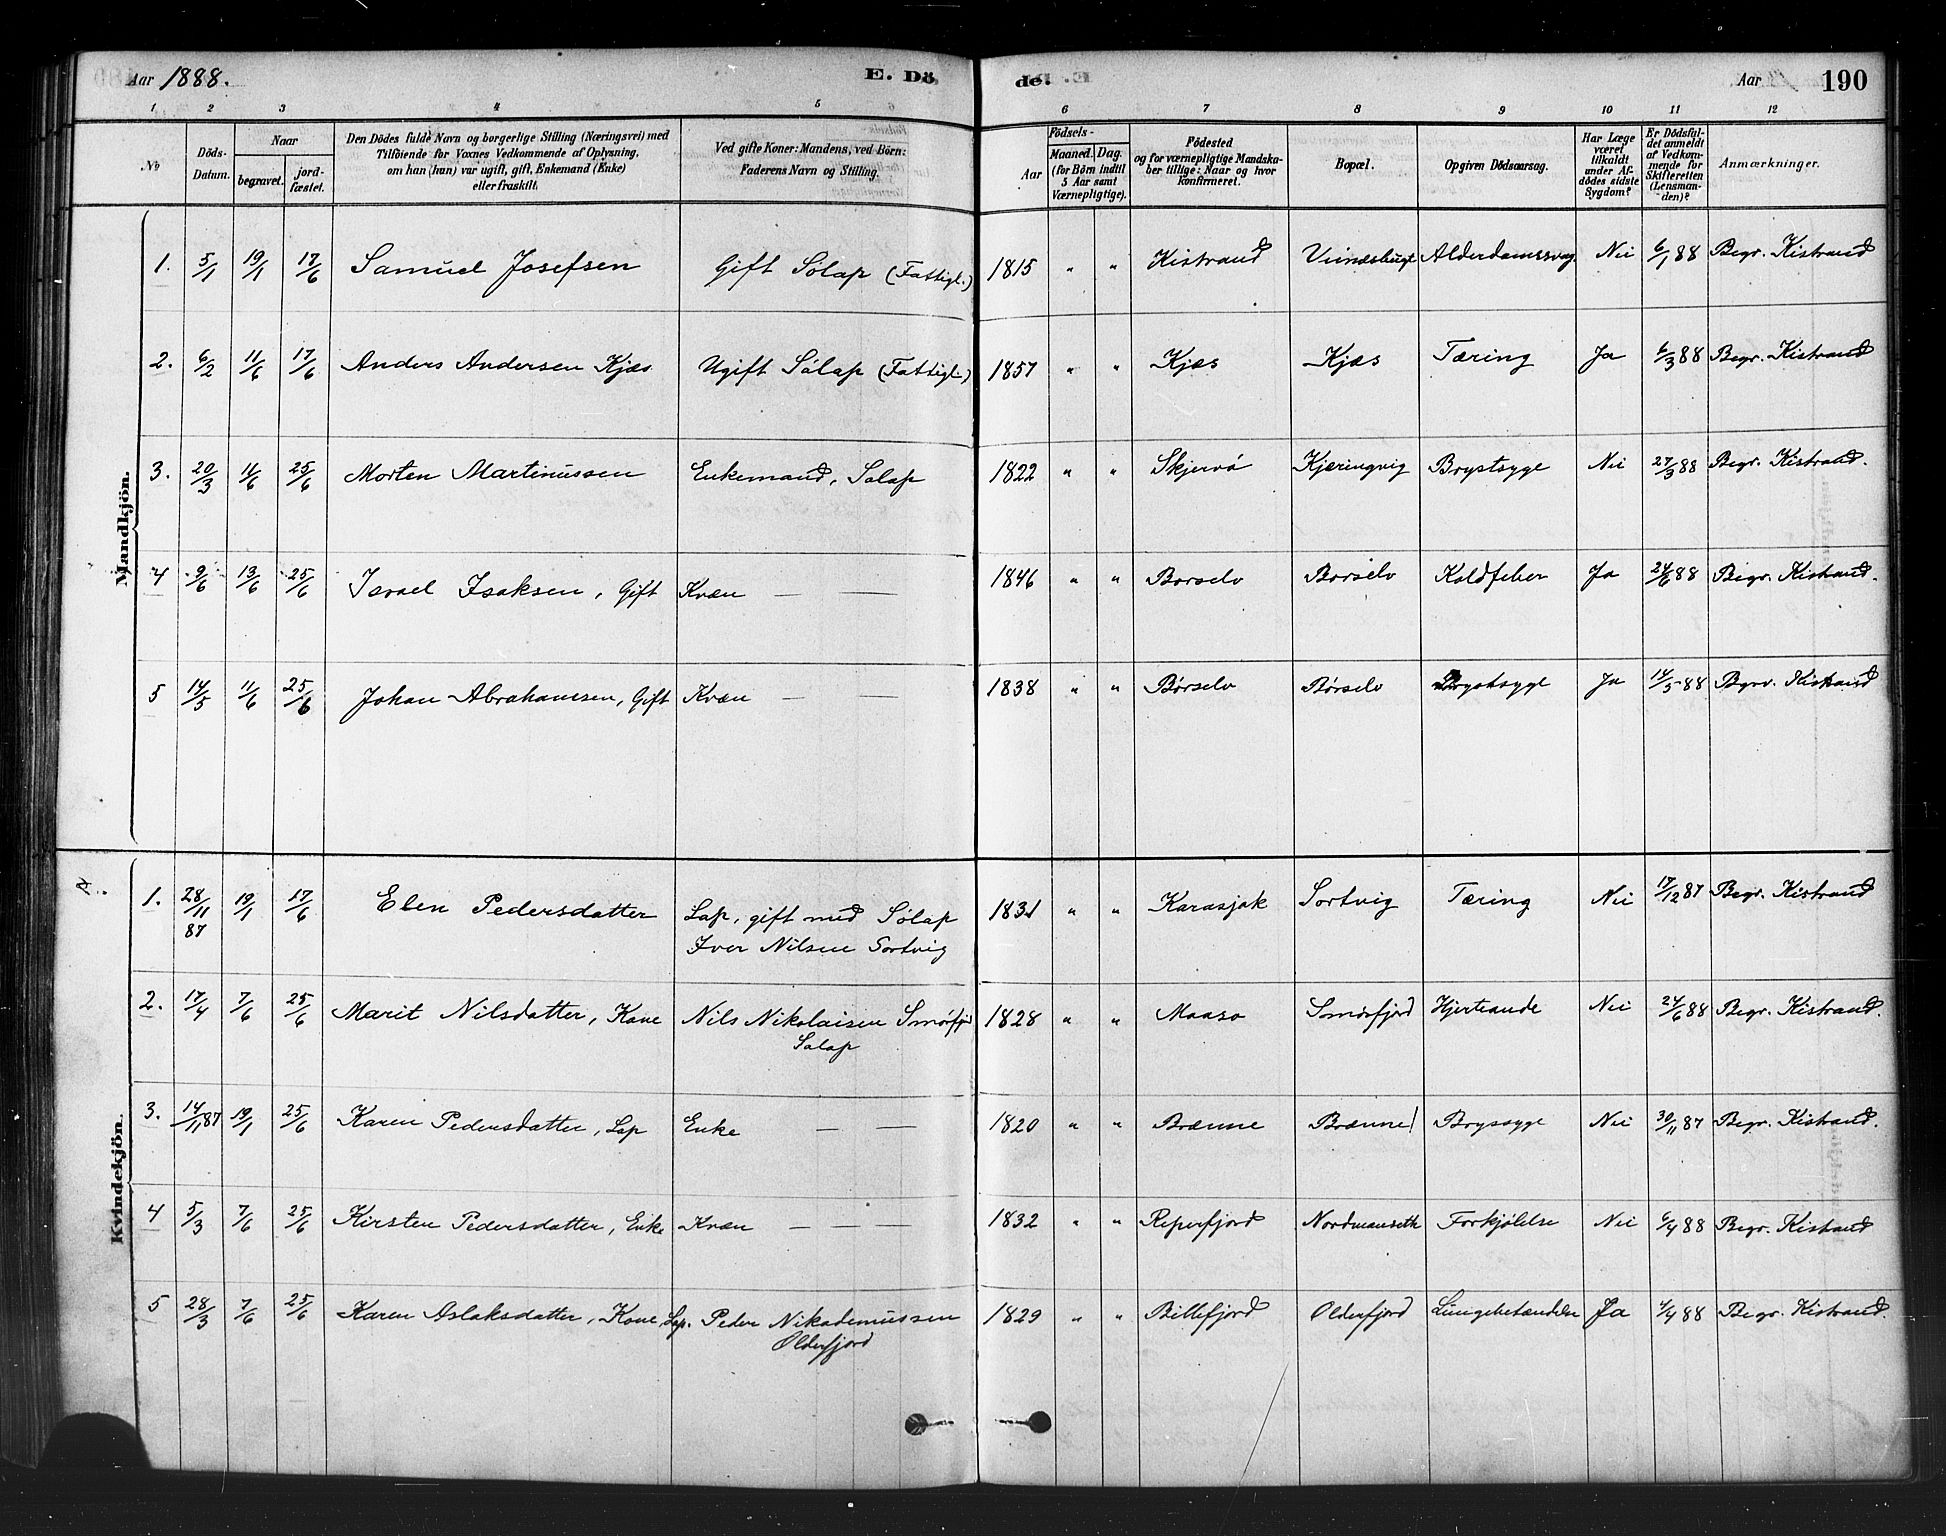 Aar 1888. E. Dö de. Aar 190
1 2 3 4 5 6 7 8 9 10 11 12
No Döds-Datum. Naar begravet. jord-fæstet. Den Dödes fulde Navn og borgerlige Stilling (Næringsvei) med Tilföiende for Voxnes Vedkommende af Oplysning, om han (hun) var ugift, gift, Enkemand (Enke) eller fraskilt. Ved gifte Koner: Mandens, ved Börn: Faderens Navn og Stilling. Födsels- Aar Maaned. Dag. (for Börn indtil 5 Aar samt Værnepligtige). Födested og for værnepligtige Mandskaber tillige: Naar og hvor konfirmeret. Bopæl. Opgiven Dödsaarsag. Har Læge været tilkaldt under Afdödes sidste Sygdom? Er Dödsfuldet anmeldt af Vedkommende for Skifteretten (Lensmanden)? Anmærkninger.
Mandkjön.
1. 5/1 19/1 17/6 Samuel Josefsen Gift Sölap (Fattigl.) 1815 " " Kistrand Alderdomssvag. Nei 6/1 88 Begr. Kistrand
2. 6/2 11/6 17/6 Anders Andersen Kjæs Ugift Sölap (Fattigl.) 1857 " " Kjæs Kjæs Tæring Ja 6/3 88 Begr. Kistrand
3. 20/3 11/6 25/6 Morten Martinussen Enkemand, Sölap 1822 " " Skjervö Kjæringvig Brystsyge Nei 27/3 88 Begr. Kistrand.
4 9/6 13/6 25/6 Israel Isaksen, Gift Kvæn — — 1846 " " Borselv Börselv Koldfeber Ja 24/6 88 Begr. Kistrand.
5 14/5 11/6 25/6 Johan Abrahamsen, Gift Kvæn — — 1838 " " Börselv Börselv Brystsyge Ja 14/5 88 Begr. Kistrand
Kvindekjön.
1. 28/11 87 19/1 17/6 Elen Pedersdatter Lap, gift med Sölap Iver Nilsen Sortvig 1831 " " Karasjok Sortvig Tæring Nei 17/12 87 Begr. Kistrand
2. 17/4 7/6 25/6 Marit Nilsdatter, Kone Nils Nikolaisen Smöfjd Sölap 1828 " " Maasö Smörfjord Hjerteonde Nei 24/6 88 Begr. Kistrand.
3. 14/11 87 19/1 25/6 Karen Pedersdatter, Lap Enke — — 1820 " " Brænne Brænne Bryssyge Nei 30/11 87 Begr. Kistrand.
4 5/3 7/6 25/6 Kirsten Pedersdatter, Enke Kvæn — — 1832 " " Repefjord Nordmanseth Forkjölelse Nei 6/4 88 Begr. Kistrand
5 28/3 7/6 25/6 Karen Aslaksdatter, Kone, Lap. Peder Nikodemussen Olderfjord 1829 " " Billefjord Olderfjord Lungebetændelse Ja 4/4 88 Begr. Kistrand.